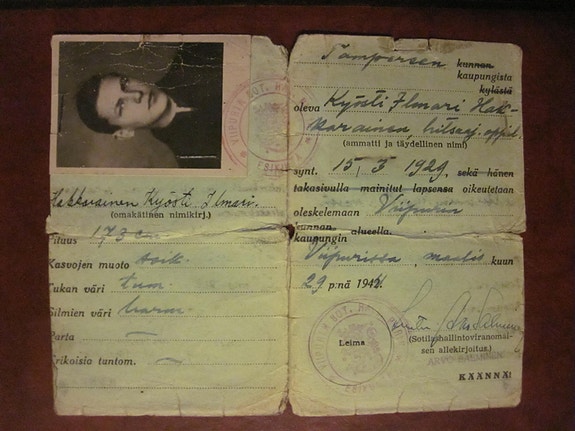 Hakkarainen Kyösti Ilmari.
(omakätinen nimikirj.)
Pituus 173 cm
Kasvojen muoto soik
Tukan väri tum.
Silmien väri harm
Parta —
Erikoisia tuntom. —
Tampereen kunnan
kaupungista
kylästä
oleva Kyösti Ilmari Hak-
karainen,
(ammatti ja täydellinen nimi)
synt. 15/3 1929, sekä hänen
takasivulla mainitut lapsensa oikeutetaan
oleskelemaan Viipurin
kunnan alueella.
kaupungin
Viipurissa, maalis kuun
29 p:nä 1944.
Leima
(Sotilashallintoviranomai-
sen allekirjoitus.)
KÄÄNNÄ!